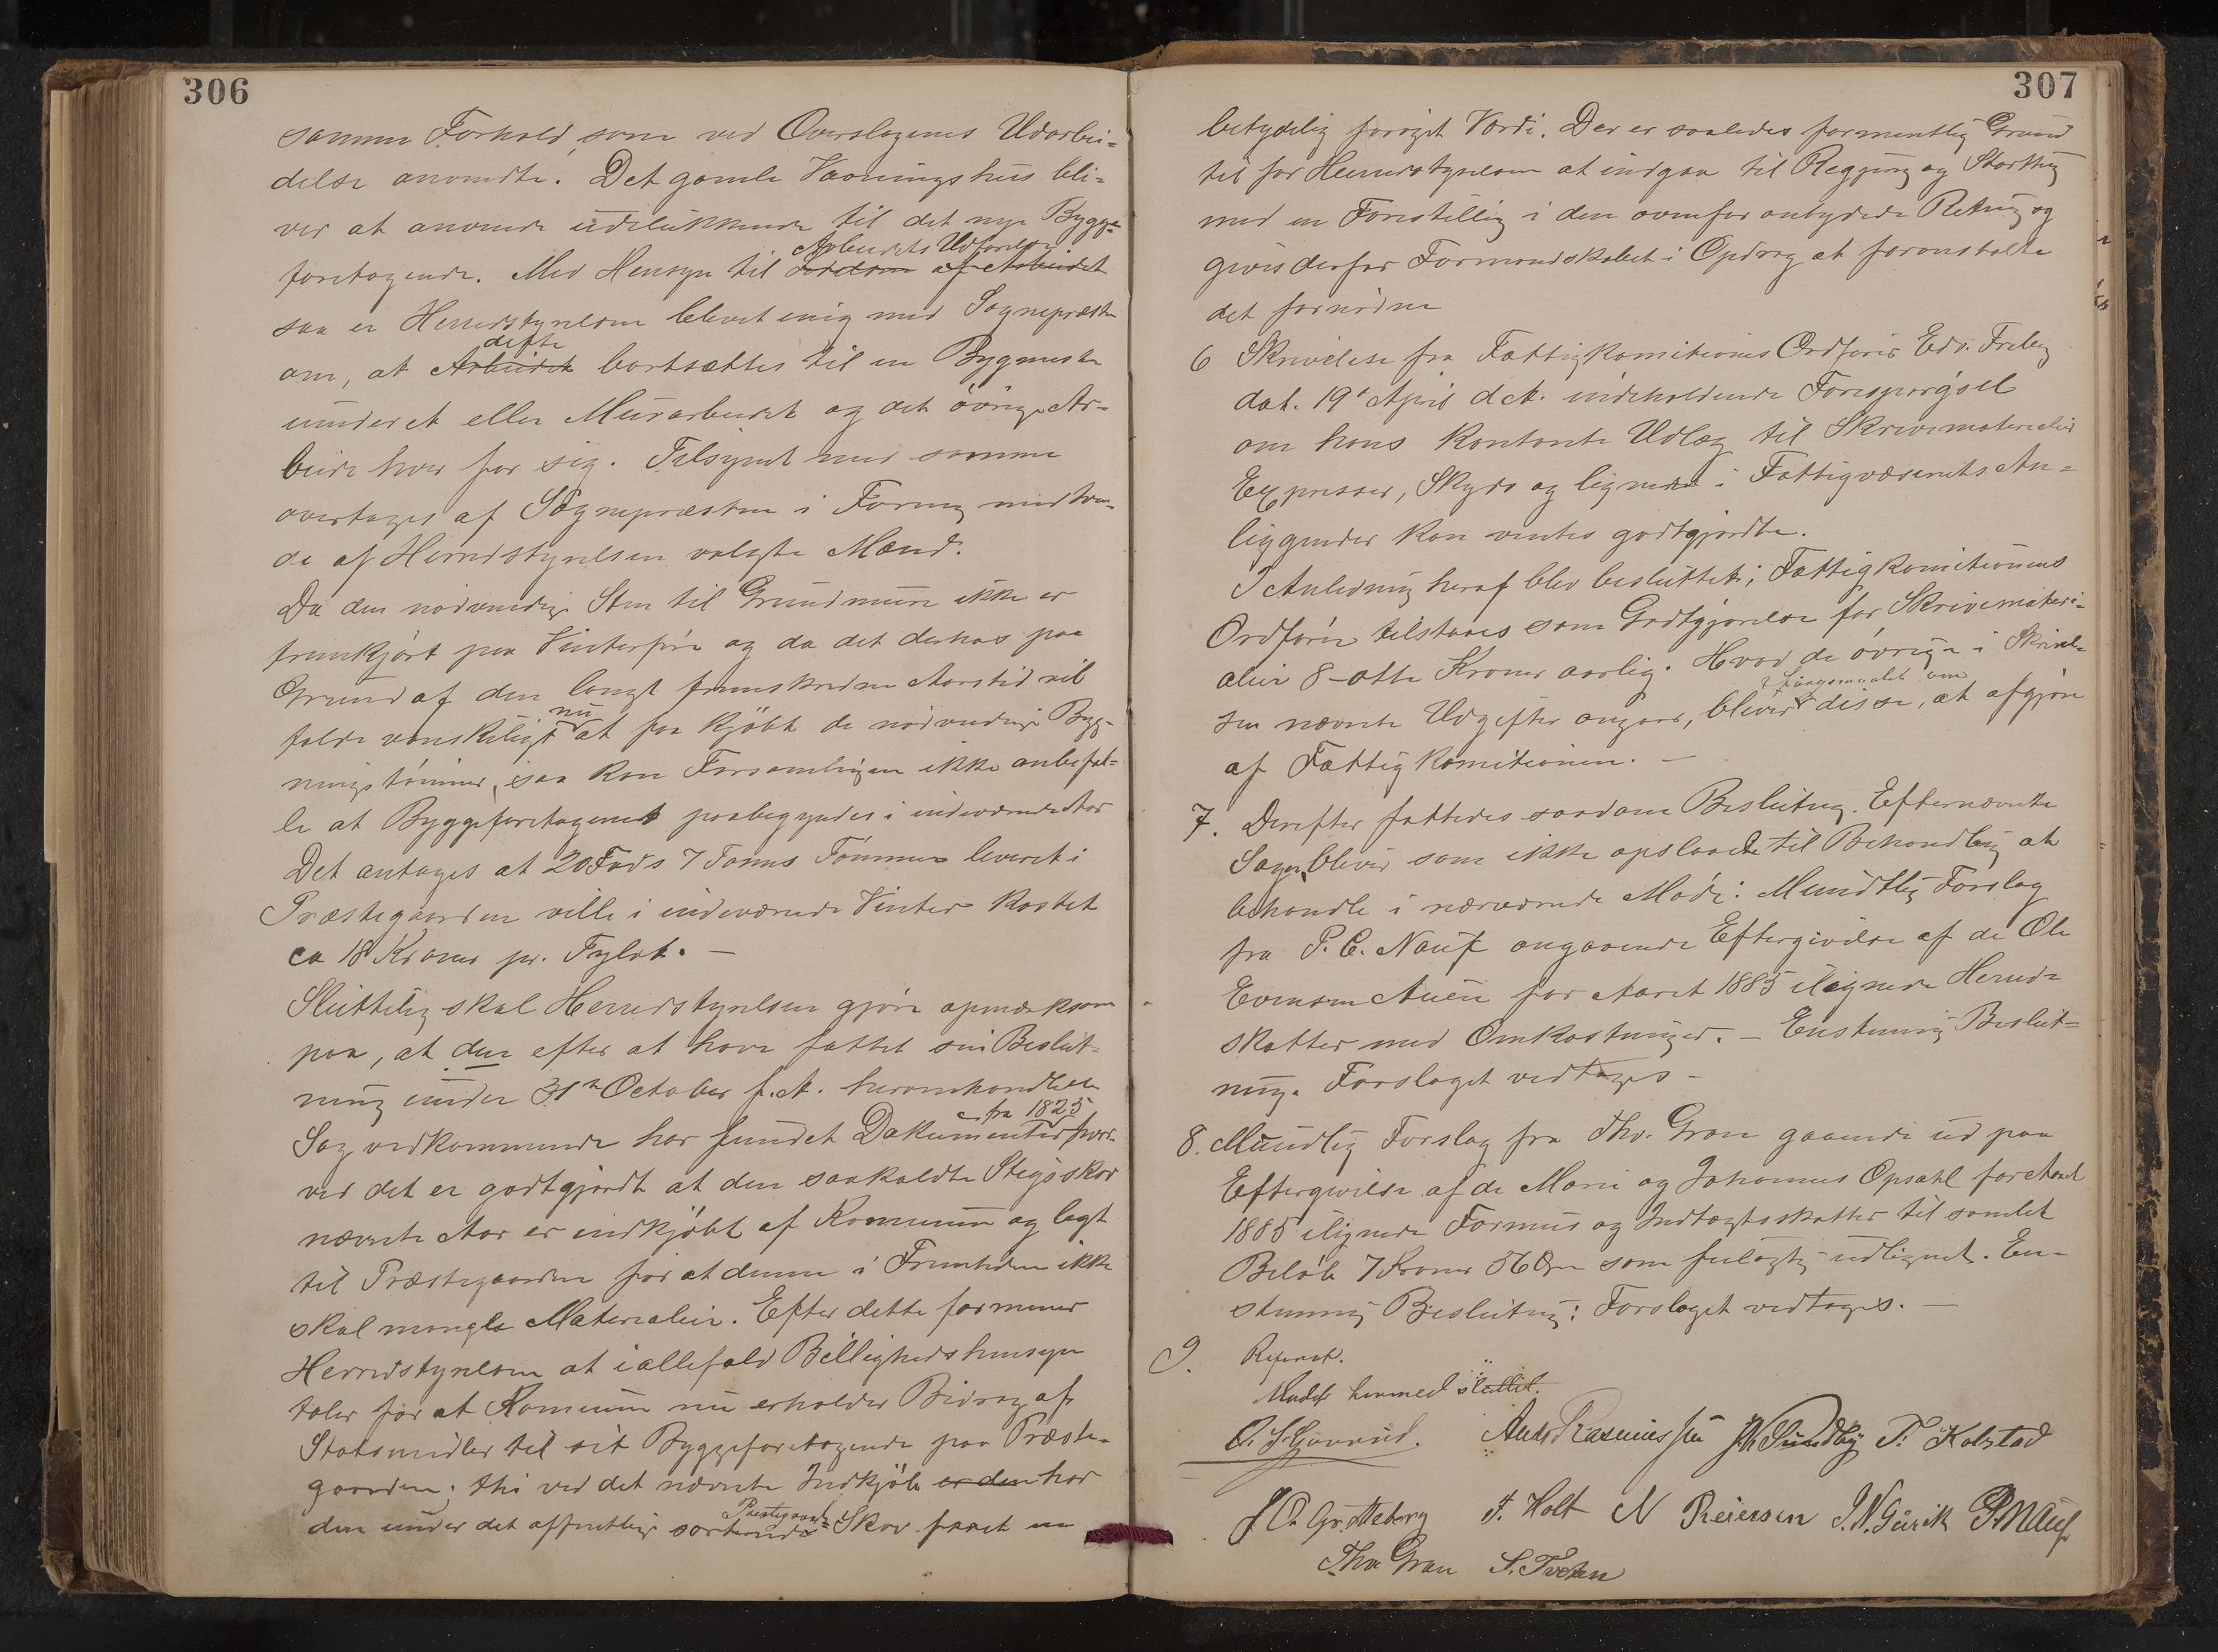 306
samme Forhold, som ved Overslagenes Udarbei=
delse anvendte. Det gamle Vaaningshus bli=
ver at anvende udelukkende til det nye Bygge=
Arbeidets Udførelse
foretagende. Med Hensyn til af Arbeidet
saa er Herredstyrelsen blevet enig med Sognepræsten
dette
om, at Arbeidet bortsættes til en Bygmester
underet eller Murarbeidet og det øvrige Ar=
beide hver for sig. Tilsynet med samme
overtages af Sognepræsten i Forening med tven=
de af Herredstyrelsen valgte Mænd.
Da den nødvendige Sten til Grundmure ikke er
fremkjørt paa Vinterføre og da det derhos paa
Grund af den langt fremskredne Aarstid vil
nu
falde vanskeligt at faa kjøbt de nødvendige Byg=
ningstømmer, saa kan Forsamlingen ikke anbefal=
le at Byggeforetagenet paabegyndes i indeværende Aar
Det antages at 20 Fods 7 Toms Tømmer leveret i
Præstegaarden ville i indeværende Vinter kostet
ca 18 Kroner pr. Tylvt. —
Sluttelig skal Herredstyrelsen gjøre opmærksom
paa, at den efter at have fattet sin Beslut=
ning under 31te October f. A. heromhandlede
fra 1825
Sag vedkommende har fundet Dokumenter hvor=
ved det er godtgjordt at den saakaldte Stegsskov
nævnte Aar er indkjøbt af Kommunen og lagt
til Præstegaarden for at denne i Fremtiden ikke
skal mangle Materialier. Efter dette formener
Herredstyrelsen at iallefald Billighedshensyn
taler for at Kommunen nu erholder Bidrag af
Statsmidler til sit Byggeforetagende paa Præste=
gaarden; thi ved det nævnte Indkjøb er den har
Præstegaards
den under det offentlige sorterende Skov faaet en
307
betydelig forøget Værdi. Der er saaledes formentlig Grund
til for Herredstyrelsen at indgaa til Regjering og Storthing
med en Forestilling i den ovenfor antydede Retning og
gives derfor Formandskabet i Opdrag at foranstalte
det fornødne
6 Skrivelse fra Fattigkomitionens Ordfører Edv. Freberg
dat. 19de April d. A. indeholdende Forespørgsel
om hans kontante Udlæg til Skrivematerialier
Expresser, Skyds og lignende i Fattigvæsenets An=
liggender kan ventes godtgjordte.
I Anledning heraf blev besluttet; Fattigkomitionens
Ordfører tilstaaes som Godtgjørelse for Skrivemateri=
alier 8 - otte Kroner aarlig. Hvad de øvrige i Skrivel=
Spørgsmaalet om
sen nævnte Udgifter angaar, bliver disse, at afgjøre
af Fattigkomitionen. —
7. Derefter fattedes saadan Beslutning. Efternævnte
Sager bliver som ikke opslaaede til Behandling at
behandle i nærværende Møde: Mundtlig Forslag
fra P. C. Nauf angaaende Eftergivelse af de Ole
Evensen Auen for Aaret 1885 ilignede Herreds=
skatter med Omkostninger. — Enstemmig Beslut=
ning. Forslaget vedtages —
8. Mundtlig Forslag fra Thv. Gran gaaende ud paa
Eftergivelse af de Marie og Johannes Opsahl for Aaret
1885 ilignede Formues og Indtægtsskatter til samlet
Beløb 7 Kroner 56 Øre som feilagtig udlignet. En=
stemmig Beslutning: Forslaget vedtages. —
9. Referat.
Mødet hermed sluttet.
Ands Rasmussen Sundby T. Kolstad
Grotteberg T. Holt N Reiersen J. N. Gurik P. Nauf
Thv. Gran S. Tveten